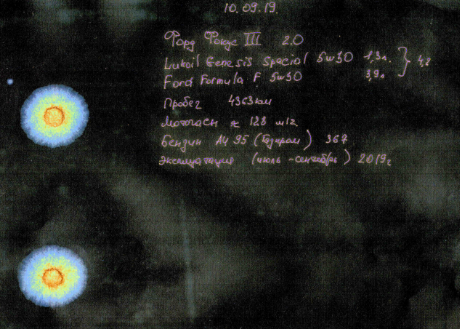 10.09.19.
Форд Фокус III 2.0
Lukoil Genesis Special 5w30 1,3л.
Ford Formula F 5w30 3,9л
Пробег 4363км
Моточасы ≈ 128 м/ч
Бензин АИ 95 (Газпром) 367
Эксплуатация (июль-сентябрь) 2019г